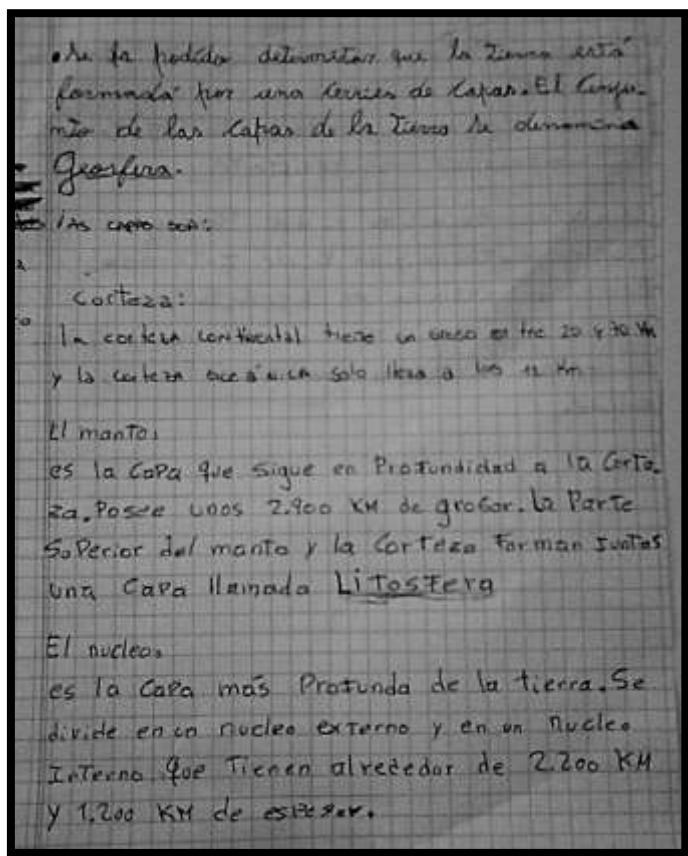 • Se ha podido determitar que la Tierra está
formada por una serries de capas. El Conju-
mto de las capas de la Tierra se denomina
Geosfera.
las capas son:
Corteza:
la corteza continental tiene un entre 20 y 70 Km
y la corteza oceánica solo llega a los 12 Km
El manto:
es la capa que sigue en Profundidad a la Corte-
za. Posee unos 2.900 KM de grosor. la Parte
Superior del manto y la Corteza Forman Juntas
una Capa llamada Litosfera
El nucleo:
es la Capa más Profunda de la tierra. Se
divide en un nucleo externo y en un nucleo
Interno que Tienen alrededor de 2.200 KM
y 1.200 KM de espesor.